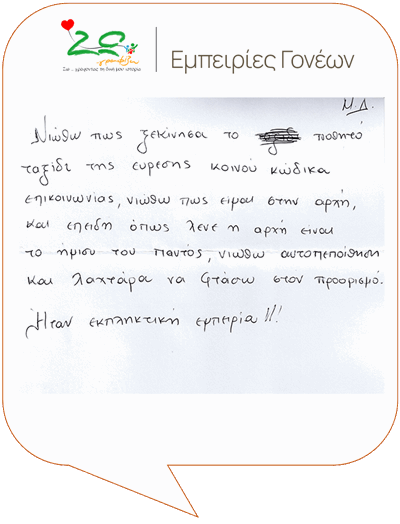 Ζω ... γράφοντας τη δική μου ιστορία
Εμπειρίες Γονέων
Μ.Δ.
Νιώθω πως ξεκίνησα το ποθητό
ταξίδι της εύρεσης κοινού κώδικα
επικοινωνίας, νιώθω πως είμαι στην αρχή,
και επειδή όπως λένε η αρχή είναι
το ήμισυ του παντός, νιώθω αυτοπεποίθηση
και λαχτάρα να φτάσω στον προορισμό.
Ήταν εκπληκτική εμπειρία!!!